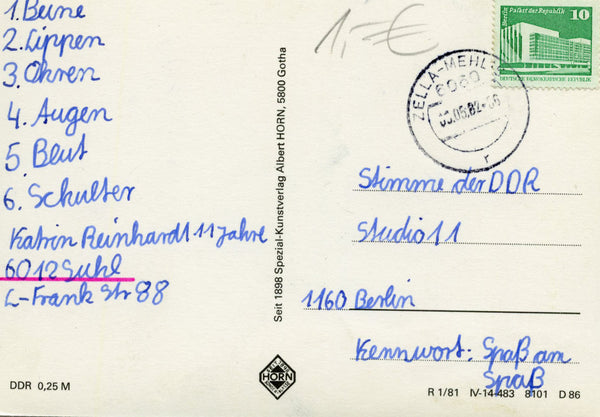 1. Beine
2. Lippen
3. Ohren
4. Augen
5. Blut
6. Schulter
Katrin Reinhardt 11 Jahre
6012 Suhl
L-Frank Str 88
DDR 0,25 M
Seit 1898 Spezial-Kunstverlag Albert HORN, 5800 Gotha
HORN
1,- €
ZELLA-MEHLIS
6060
r
Berlin Palast der Republik
10
DEUTSCHE DEMOKRATISCHE REPUBLIK
Stimme der DDR
Studio 11
1160 Berlin
Kennwort: Spaß am
Spaß
R 1/81 IV-14-483 8101 D 86